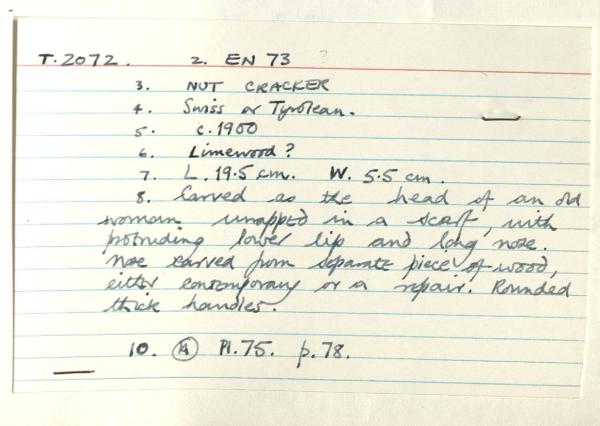 T.2072. 2. EN 73 ?
3. NUT CRACKER
4. Swiss or Tyrolean.
5. c.1900
6. Limewood?
7. L. 19.5 cm. W. 5.5 cm.
8. Carved as the head of an old
woman wrapped in a scarf, with
protruding lower lip and long nose.
Nose carved from separate piece of wood,
either contemporary or a repair. Rounded
thick handles.
10. (A) Pl. 75. p. 78.